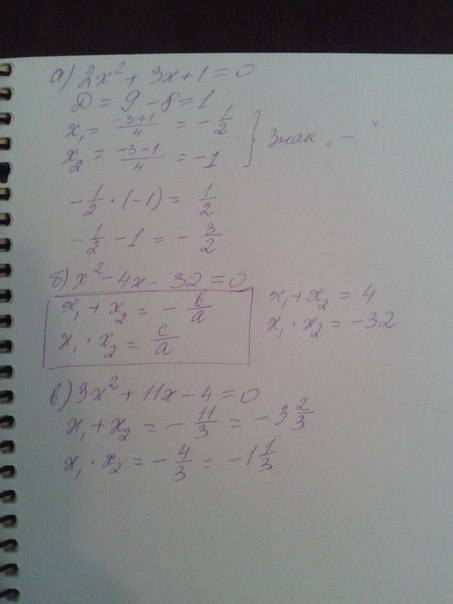 а) 2x² + 3x + 1 = 0
D = 9 - 8 = 1
x₁ = (-3+1)/4 = -1/2
x₂ = (-3-1)/4 = -1 } Знак „-“
-1/2 · (-1) = 1/2
-1/2 - 1 = -3/2
б) x² - 4x - 32 = 0
x₁ + x₂ = -b/a
x₁ · x₂ = c/a
x₁ + x₂ = 4
x₁ · x₂ = -32
в) 3x² + 11x - 4 = 0
x₁ + x₂ = -11/3 = -3 2/3
x₁ · x₂ = -4/3 = -1 1/3